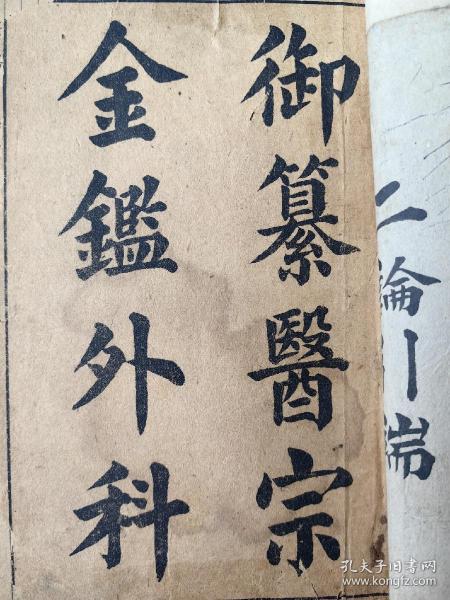 御纂醫宗
金鑑外科
論
端
孔夫子旧书网
www.kongfz.com